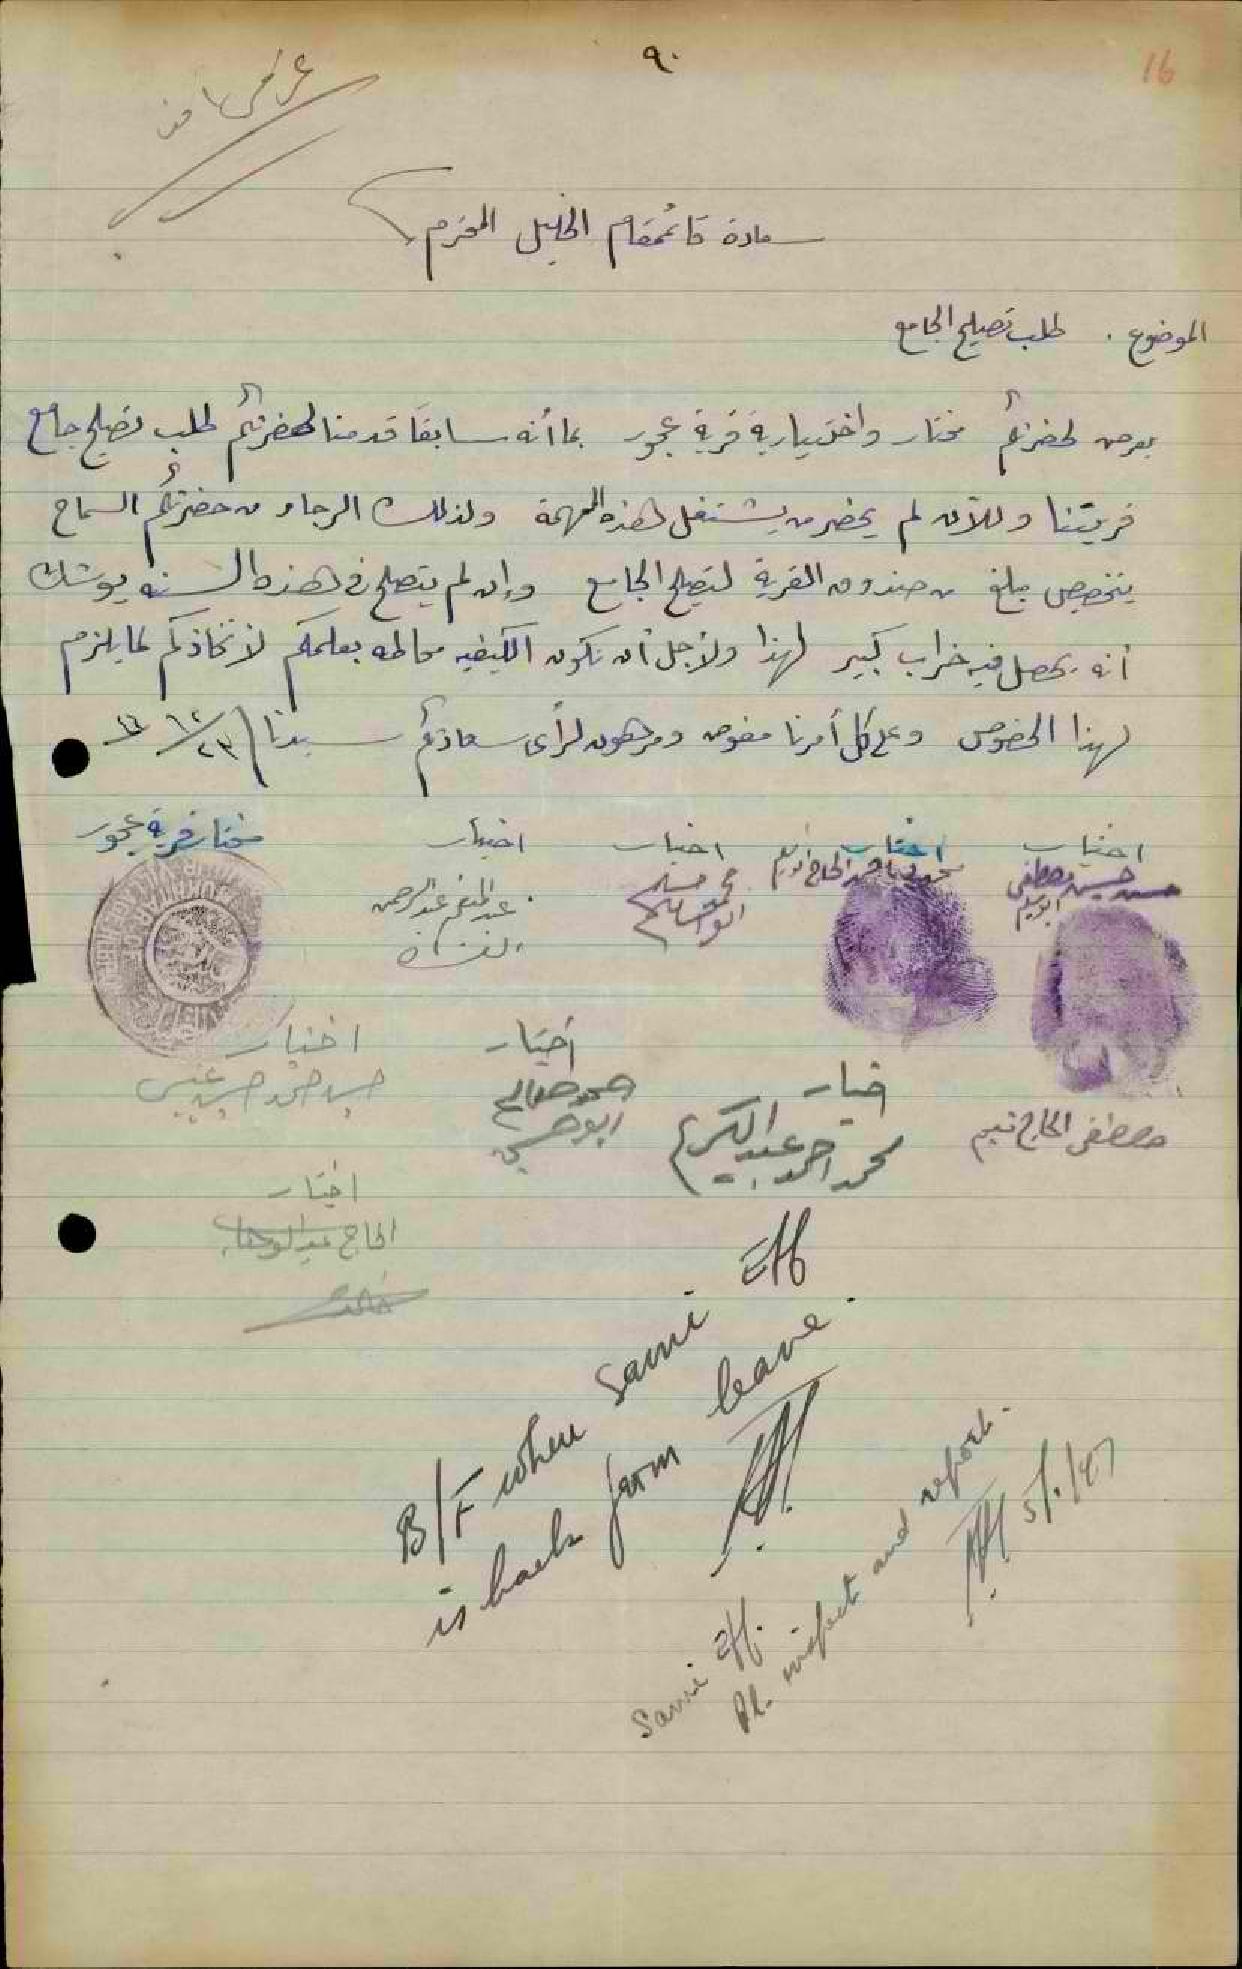 ٩٠
16
سعادة قائمقام الخليل المحترم
الموضوع . طلب تصليح الجامع
يعرض لحضرتكم مختار واختيارية قرية عجور بما أنه سابقاً قدمنا لحضرتكم طلب تصليح جامع
قريتنا وللآن لم يحضر من يشتغل لهذه المهمة ولذلك الرجاء من حضرتكم السماح
بتخصيص مبلغ من صندوق القرية لتصليح الجامع وإن لم يتصلح في هذه السنه يوشك
أنه يحصل فيه خراب كبير لهذا ولأجل أن تكون الكيفيه محاطه بعلمكم لأتخاذكم لما يلزم
لهذا الخصوص وعلى كل أمرنا مفوض ومرهون لرأى سعادتكم سيدنا ٢٣/١٢/٤٦
اختيار اختيار اختيار اختيار مختار قرية عجور
حسين حسين مصطفى
محمد مسلم
عبد المنعم عبد الرحمن
اختيار اختيار
محمد صالح
ابو حسين
اختيار
محمد احمد عبد الكريم
مصطفى الحاج نعيم
اختيار
الحاج عبد الوهاب
B/F when Sami Eff
is back from leave.
Sami Eff.
Pl. inspect and report.
5/1/47